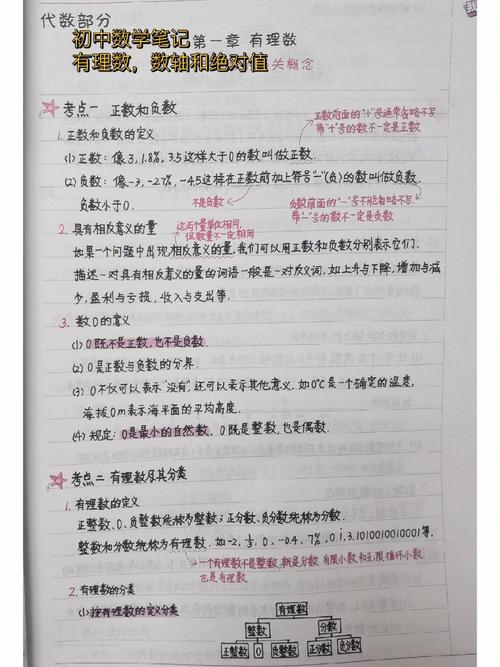 代数部分
初中数学笔记 第一章 有理数
有理数，数轴和绝对值 关概念
考点一 正数和负数
正数前面的"+"号通常省略不写,
带"+"号的数不一定是正数
1. 正数和负数的定义
(1) 正数：像3, 1.8%, 3.5这样大于0的数叫做正数.
(2) 负数：像-3, -2.7%, -4.5这样在正数前加上符号"-"(负)的数叫做负数.
负数小于0.
不是负数
负数前面的"-"号不能省略不写,
带"-"号的数不一定是负数
2. 具有相反意义的量
这两个量单位相同,
但数量不一定相同
如果一个问题中出现相反意义的量,我们可以用正数和负数分别表示它们.
描述一对具有相反意义的量的词语一般是一对反义词,如上升与下降,增加与减
少,盈利与亏损,收入与支出等.
3. 数0的意义
(1) 0既不是正数,也不是负数
(2) 0是正数与负数的分界.
(3) 0不仅可以表示"没有",还可以表示其他意义.如0℃是一个确定的温度,
海拔0m表示海平面的平均高度.
(4) 规定：0是最小的自然数, 0既是整数,也是偶数.
考点二 有理数及其分类
1. 有理数的定义
正整数、0、负整数统称为整数；正分数、负分数统称为分数.
整数和分数统称为有理数.如-2, 0, -0.4, 7%, 3.1010010010001等.
一个有理数不是整数,就是分数 有限小数和无限循环小数
也是有理数
2. 有理数的分类
(1) 按有理数的定义分类
有理数
整数 分数
正整数 0 负整数 正分数 负分数